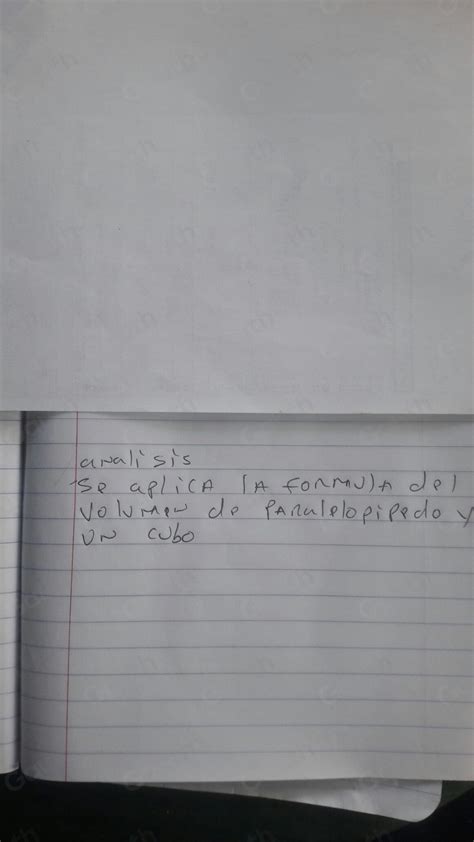 analisis
Se aplica la formula del
volumen de paralelopipedo y
un cubo